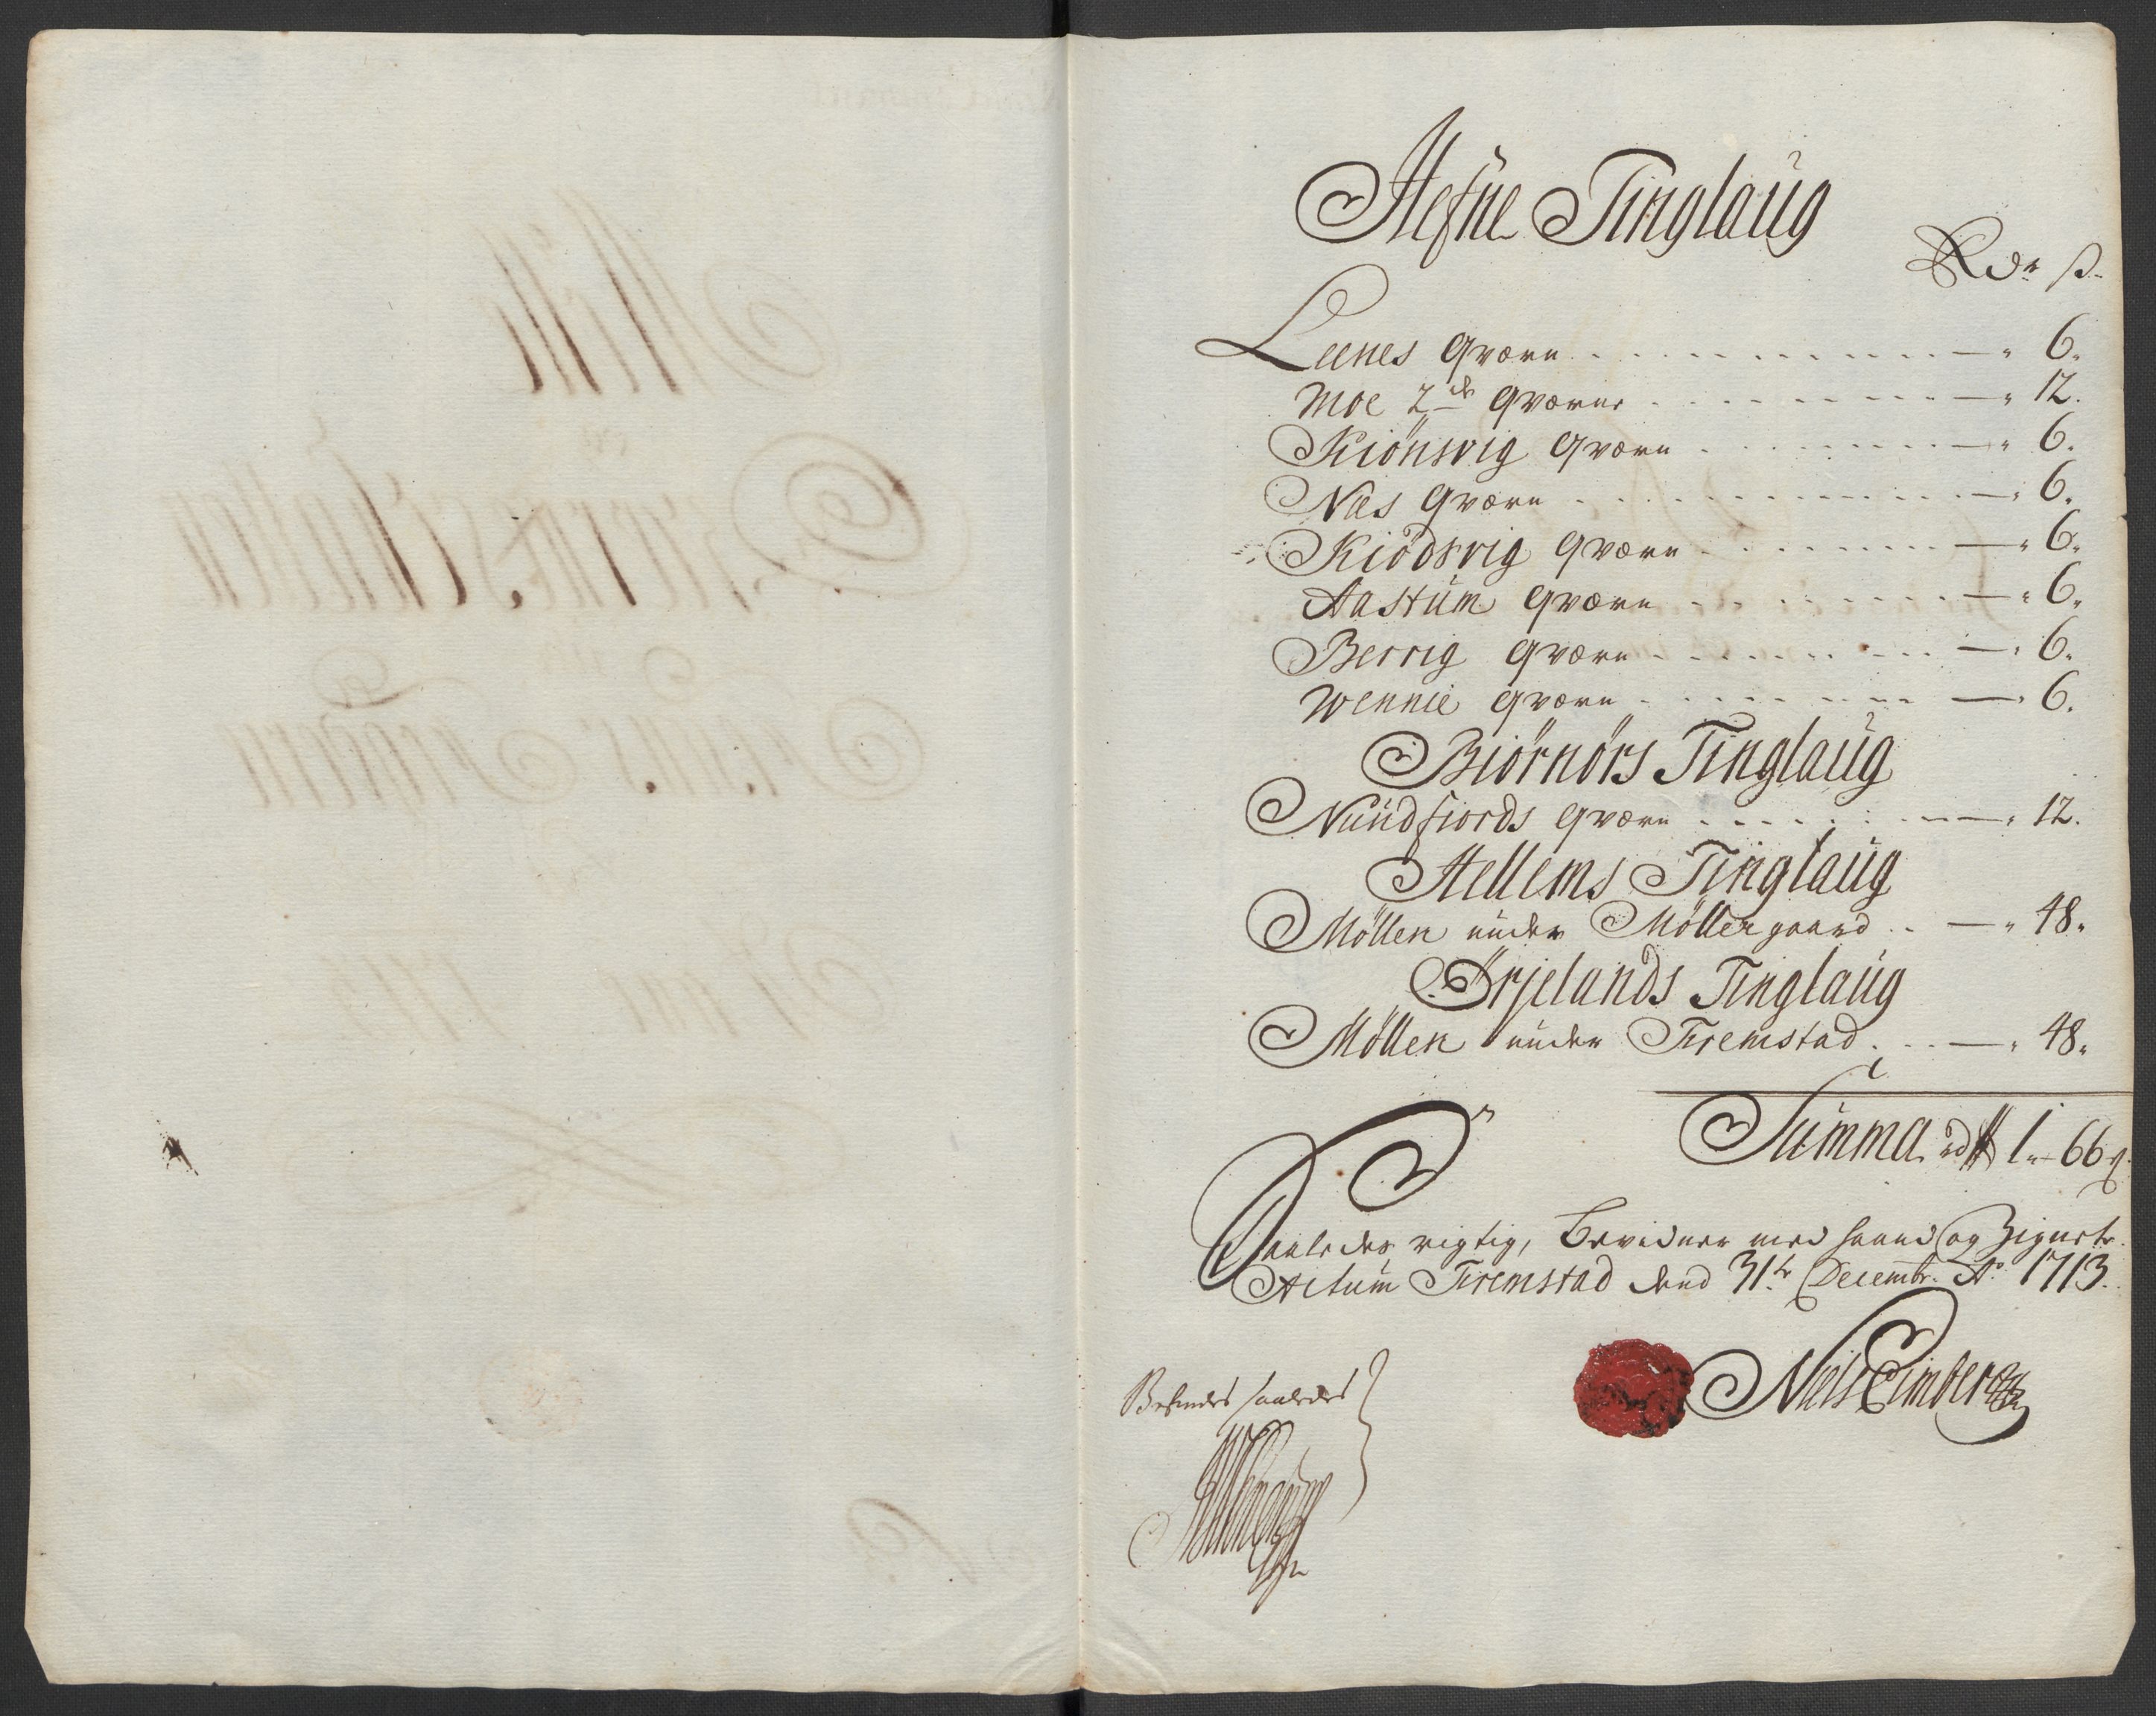 Hefne Tinglaug
Rdr ß
Leenes Qværn - 6.
Moe 2de Qværne - 12.
Kiönsvig Qværn - 6.
Næs Qværn - 6.
Kiödsvig Qværn - 6.
Aastüm Qværn - 6.
Berrig Qværn - 6.
Wennie Qværn - 6.
Biörnörs Tinglaug
Nündfiords Qværn - 12.
Hellems Tinglaug
Möllen under Möllergaard - 48.
Örjelands Tinglaug
Möllen under Fremstad - 48.
Summa 1 - 66
Saaledes rigtig, Bevidner med haand og Zignete.
Actum Fremstad dend 31te Decembr. Ao 1713.
Befindes saaledes
Niels Eimber